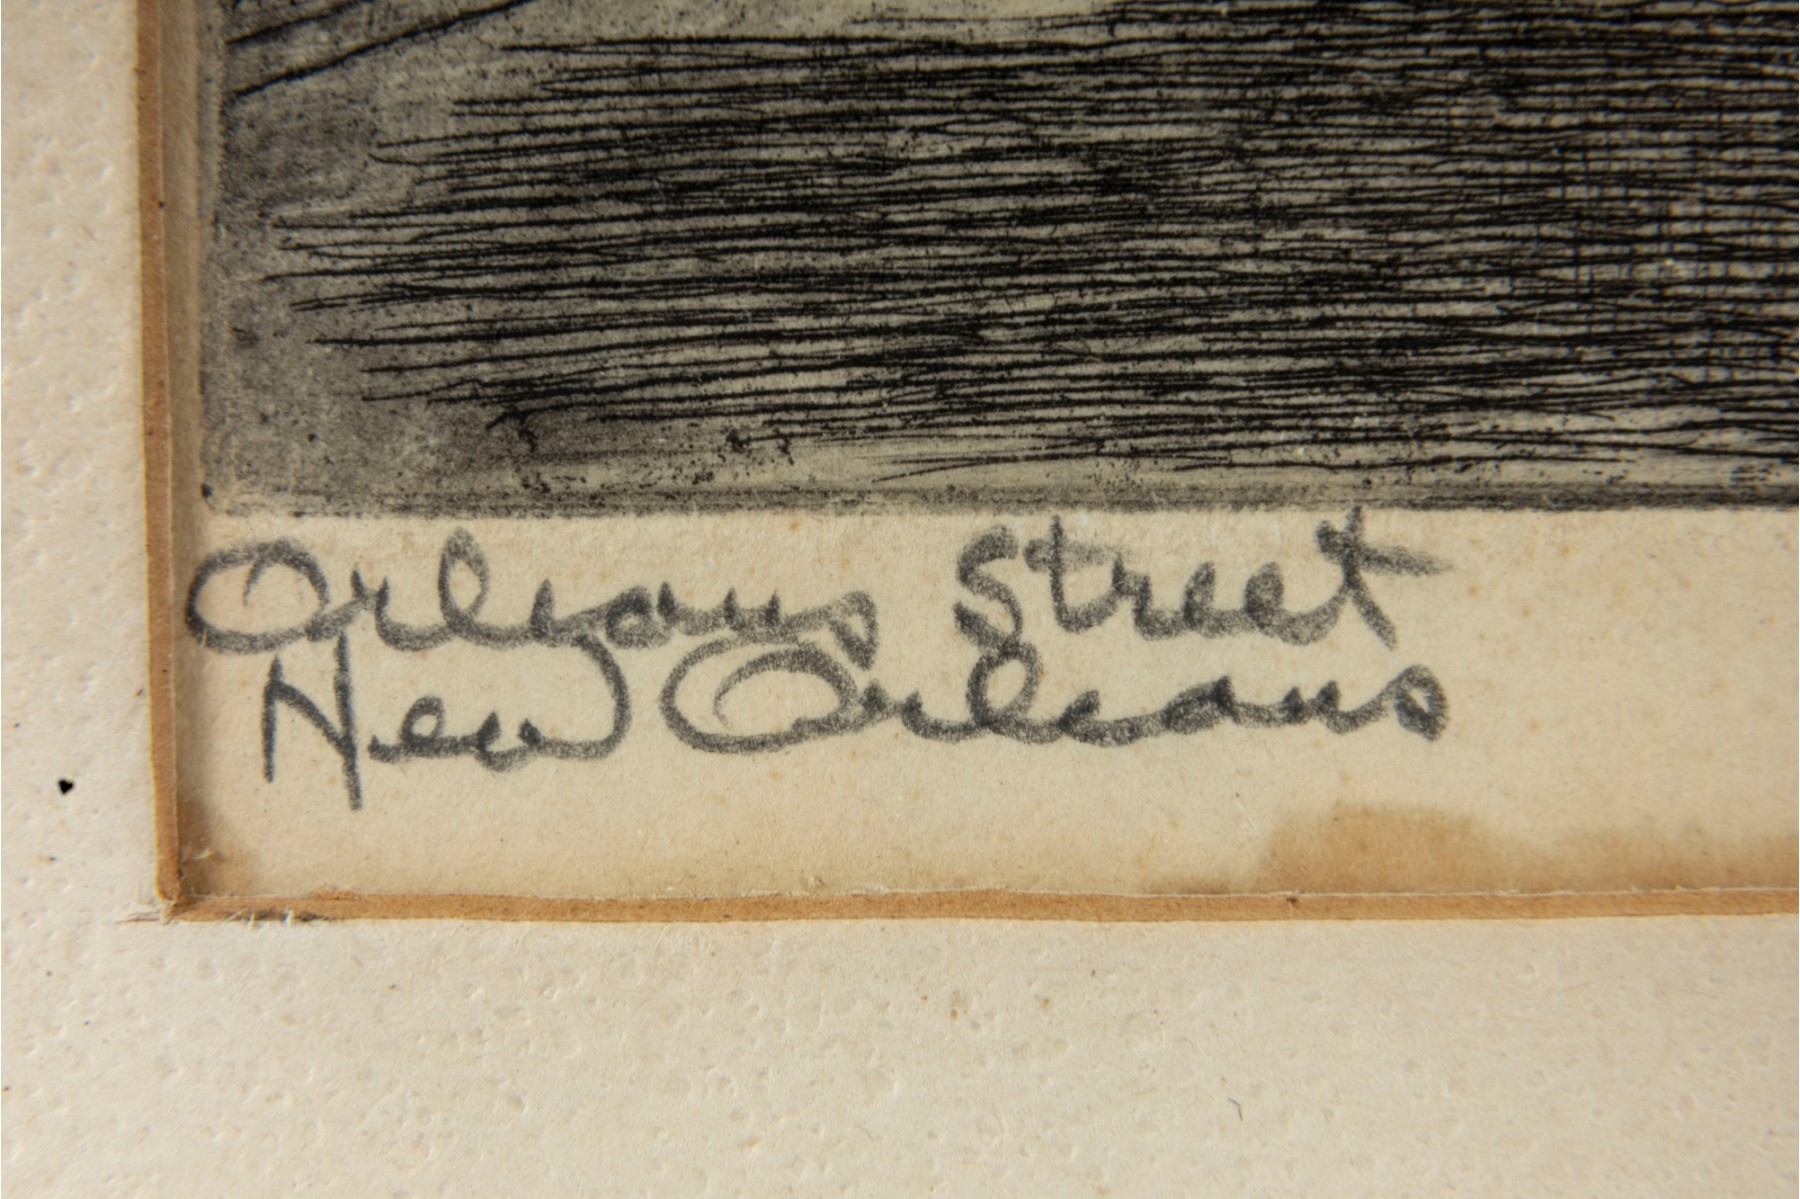 Orleans Street
New Orleans